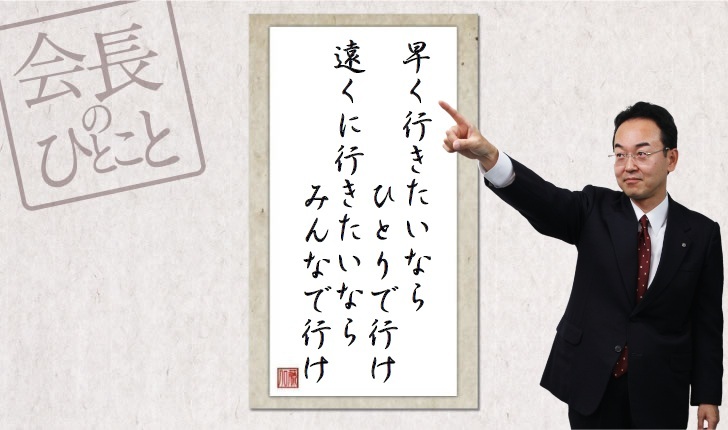 会長
の
ひとこと
早く行きたいなら
ひとりで行け
遠くに行きたいなら
みんなで行け